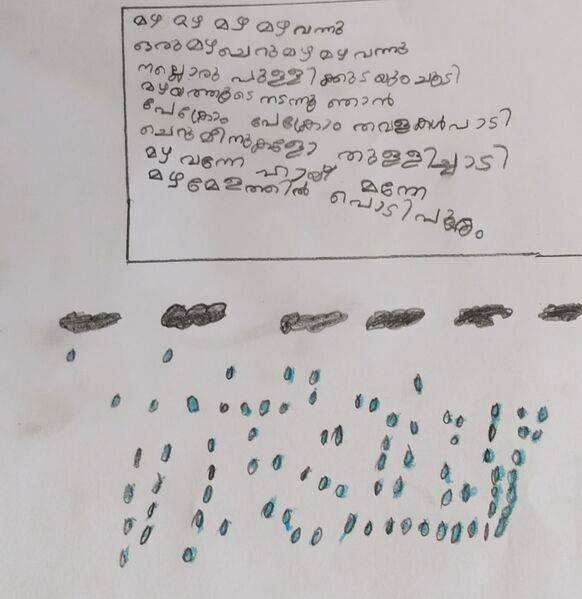 മഴ മഴ മഴ മഴ വന്നു
ഒരു മഴ ചെറു മഴ മഴ വന്നു
നല്ലൊരു പുള്ളിക്കുടയും ചൂടി
മഴയത്തൂടെ നടന്നു ഞാൻ
പേക്രോം പേക്രോം തവളകൾ പാടി
ചെറു മീനുകളോ തുള്ളിച്ചാടി
മഴ വന്നേ ഹായ് മന്നേ
മഴമേളത്തിൽ പൊടിപൂരം